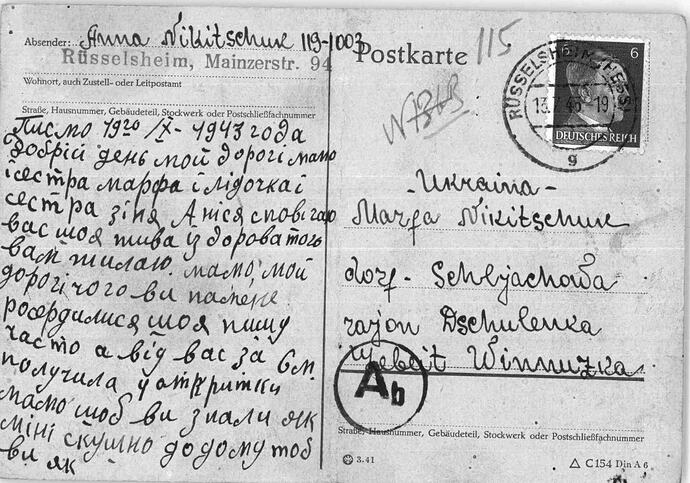 Absender: Anna Nikitschuk 119-1003
Rüsselsheim, Mainzerstr. 94
Wohnort, auch Zustell- oder Leitpostamt
Straße, Hausnummer, Gebäudeteil, Stockwerk oder Postschließfachnummer
Писмо 19го /X- 1943 года
Добрій день мой дорогі мамо
і сестра марфа і лідочка і
сестра зіня А ніся сповіщаю
вас шоя жива і здорова того
вам жилаю. мамо мой
дорогі чого ви на мене
росердилися шоя пишу
часто а від вас за 6м.
получила 4 откритки
мамо шоб ви знали як
міні скушно додому тоб
ви як
Postkarte
115
RÜSSELSHEIM
19
g
6 6
DEUTSCHES REICH
-Ukraina-
Marfa Nikitschuk
dorf- Schljachowa
rajon Dschulenka
Gebait Winnuzka
Ab
Straße, Hausnummer, Gebäudeteil, Stockwerk oder Postschließfachnummer
3.41
C 154 Din A 6